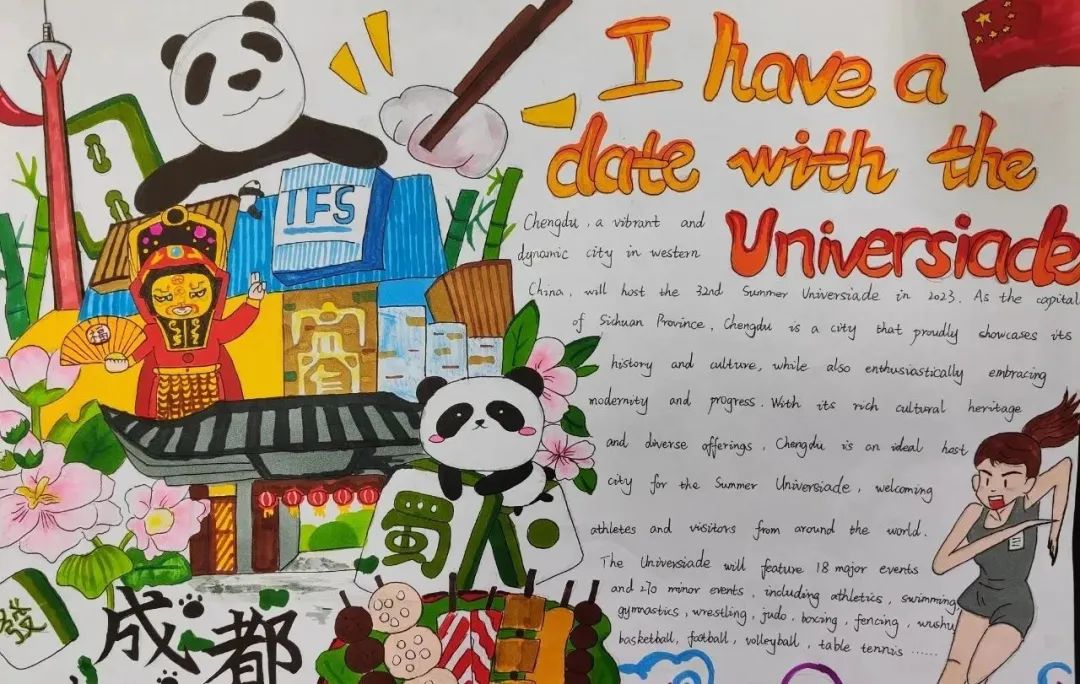 I have a
date with the
Universiade
Chengdu, a vibrant and
dynamic city in western
China, will host the 32nd Summer Universiade in 2023. As the capital
of Sichuan Province, Chengdu is a city that proudly showcases its
history and culture, while also enthusiastically embracing
modernity and progress. With its rich cultural heritage
and diverse offerings, Chengdu is an ideal host
city for the Summer Universiade, welcoming
athletes and visitors from around the world.
The Universiade will feature 18 major events
and 270 minor events, including athletics, swimming,
gymnastics, wrestling, judo, boxing, fencing, wushu
basketball, football, volleyball, table tennis ......
IFS
福
蜀
發
成都